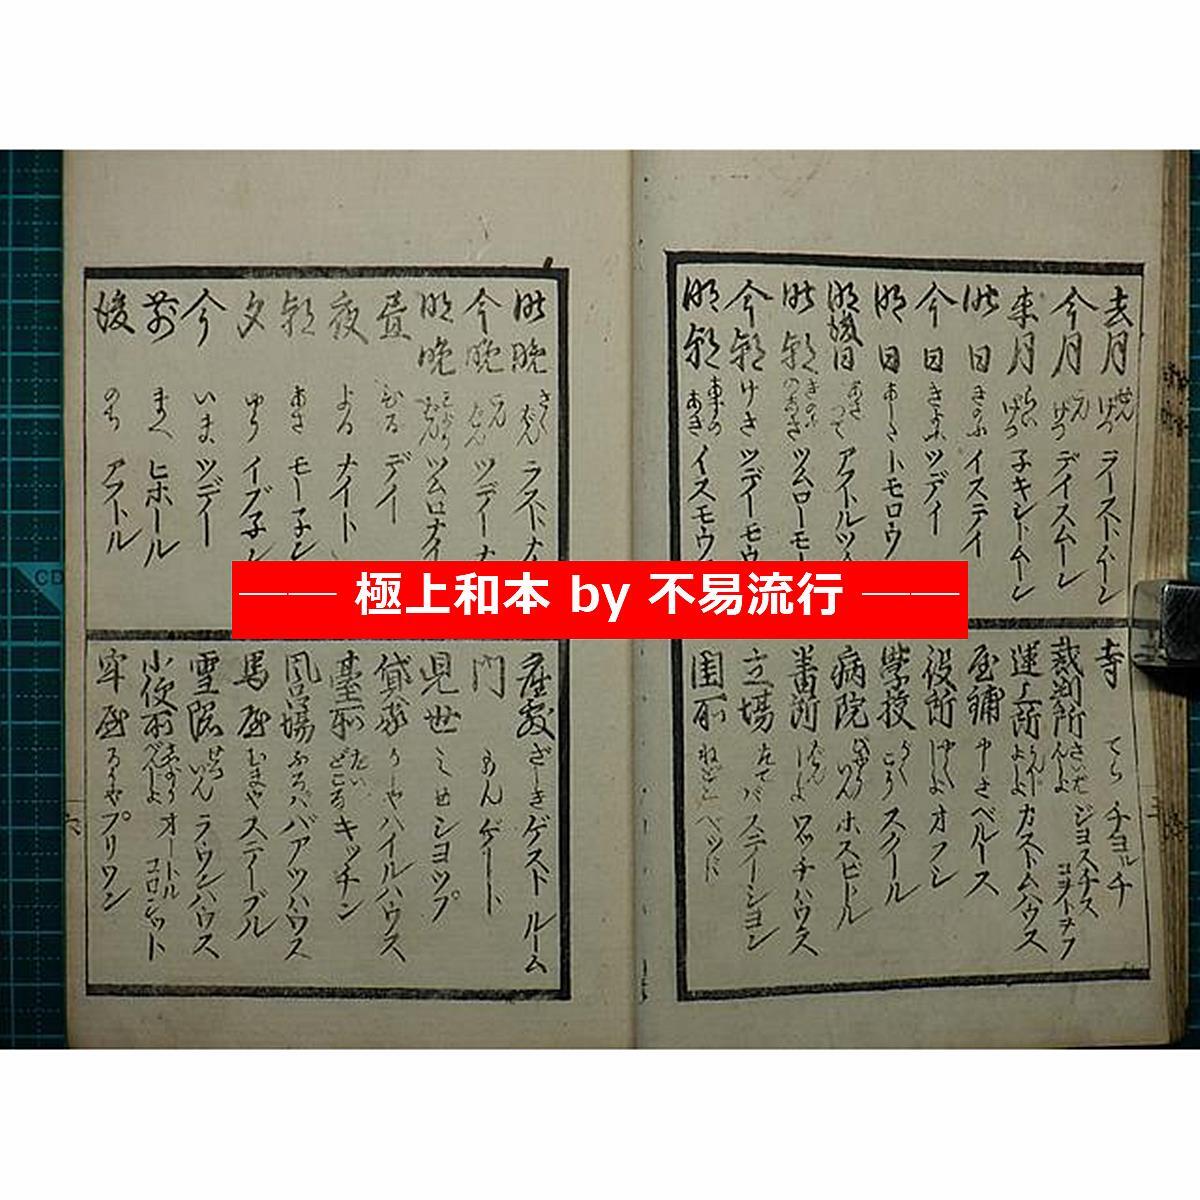 去月 せんげつ ラーストムーン
今月 こんげつ デイスムーン
来月 らいげつ 子キシトムーン
昨日 きのふ イステイ
今日 きょふ ツデイ
明日 あした トモロウ
明後日 あさつて アフトルツ
昨朝 きのふのあさ ツムローモー
今朝 けさ ツデーモウ
明朝 あすのあさ イスモウ
寺 てら チヨルチ
裁判所 さいばんしよ ジヨスチス コヲトヲフ
運上所 うんじよふしよ カストムハウス
屋鋪 やしき ベルース
役所 やくしよ オフシ
学校 がくこう スクール
病院 びやういん ホスピトル
番所 ばんしよ ワッチハウス
立場 たてバ ステイーシヨン
閨所 ねどこ ベツド
昨晩 さくばん ラストナ
今晩 こんばん ツデーナ
明晩 ツムロナイ
昼 ひる デイ
夜 よる ナイト
朝 あさ モー子ン
夕 ゆう イブ子ン
今 いま ツデー
前 まへ ヒホール
後 のち アフトル
座敷 ざしき ゲストルーム
門 もん ゲート
見世 ミせ シヨツプ
貸家 かしや ハイルハウス
臺所 だいどころ キッチン
風呂場 ふろバ バアツハウス
馬屋 むまや ステーブル
雪隠 せついん ラウンハウス
小便所 べんじよ オートル コロセット
牢屋 ろうや プリウン
極上和本 by 不易流行
CD